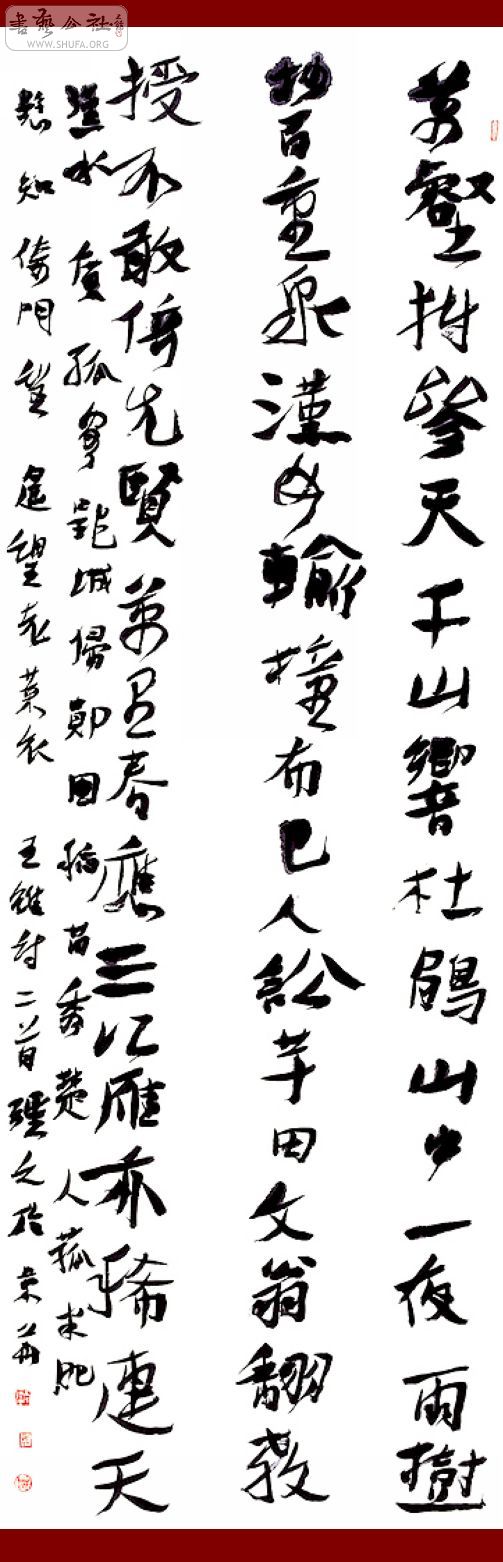 書藝公社
WWW.SHUFA.ORG
萬壑樹參天千山響杜鵑山中一夜雨樹
杪百重泉漢女輸橦布巴人訟芋田文翁翻教
授不敢倚先賢萬里春應三江雁亦稀連天
漢水廣孤客郢城歸鄖國稻苗秀楚人菰米肥
懸知倚門望遙望老萊衣 王維詩二首 之於京華